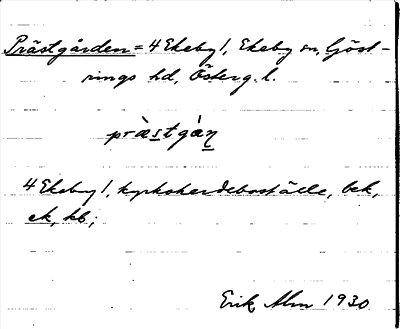 Prästgården = 4 Ekeby 1, Ekeby sn, Göst-
rings hd, Österg. l.
præ̀stgàɳ
4 Ekeby 1, kyrkoherdeboställe, bek,
ek, kb;
Erik Alm 1930